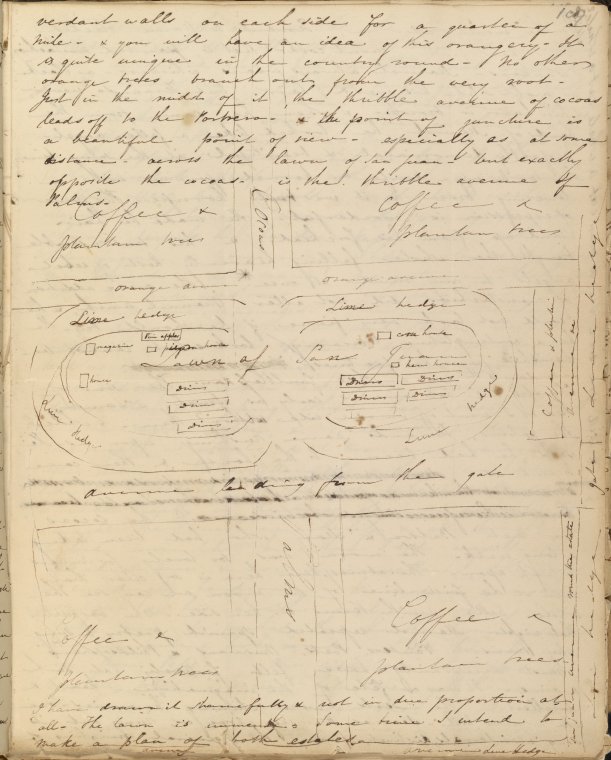 verdant walls on each side for a quarter of a
mile - & you will have an idea of this orangery - It
is quite unique in the country round - No other
orange trees branch out from the very root -
Just in the midst of it, the thribble avenue of cocoas
leads off to the - & the point of juncture is
a beautiful point of view - especially as at some
distance across the lawn of San Juan - but exactly
opposite the cocoas - is the thribble avenue of
Palms -
Coffee &
plantain trees
Cocoas
Coffee &
plantain trees
orange avenue
orange avenue
Lime hedge
Lime hedge
Pine apples
pidgeon house
house
Lawn of San Juan
Driers
Driers
Driers
Lime Hedge
corn house
hen house
Driers
Driers
Driers
Driers
Lime hedge
Coffee & plantain
avenue leading from the gate
gate
Lime hedge
Palms
Coffee &
plantain trees
Coffee &
plantain trees
avenue round the estate
lime hedge
I have drawn it shamefully & not in due proportion at
all - The lawn is immense - Some time I intend to
make a plan of both estates -
avenue
avenue
Lime hedge